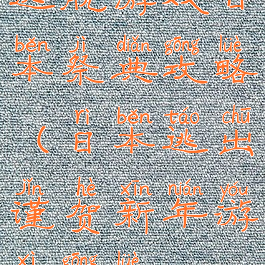 běn jì diǎn gōng lüè
本祭典攻略
rì běn táo chū
（日本逃出
jǐn hè xīn nián yóu
谨贺新年游
xì gōng lüè